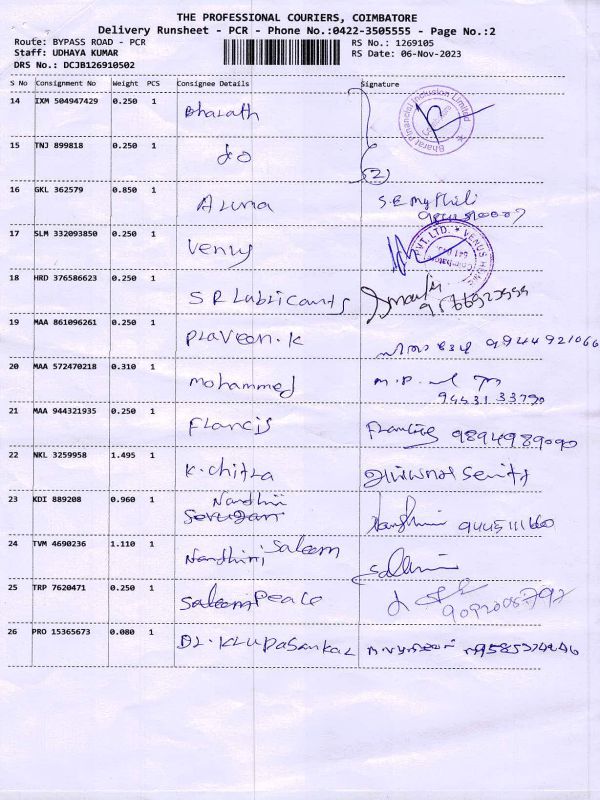 THE PROFESSIONAL COURIERS, COIMBATORE
Delivery Runsheet - PCR - Phone No.:0422-3505555 - Page No.:2
Route: BYPASS ROAD - PCR RS No.: 1269105
Staff: UDHAYA KUMAR RS Date: 06-Nov-2023
DRS No.: DCJB126910502
S No Consignment No Weight PCS Consignee Details Signature
14 IXM 504947429 0.250 1 Bharath Bharat Financial Inclusion Limited
15 TNJ 899818 0.250 1 do (2)
16 GKL 362579 0.850 1 Aruna S.R Mythili
17 SLM 332093850 0.250 1 Venus PVT. LTD. * VENUS
18 HRD 376586623 0.250 1 S R Lubricants
19 MAA 861096261 0.250 1 Praveen.K 9944921066
20 MAA 572470218 0.310 1 Mohammed M.P.
94431 33790
21 MAA 944321935 0.250 1 Francis Francis 9894989090
22 NKL 3259958 1.495 1 K.Chitra
23 KDI 889208 0.960 1 Nandhini
24 TVM 4690236 1.110 1 Nandhini Saleem
25 TRP 7620471 0.250 1 Saleem Peace
26 PRO 15365673 0.080 1 Dr. Krupasankar